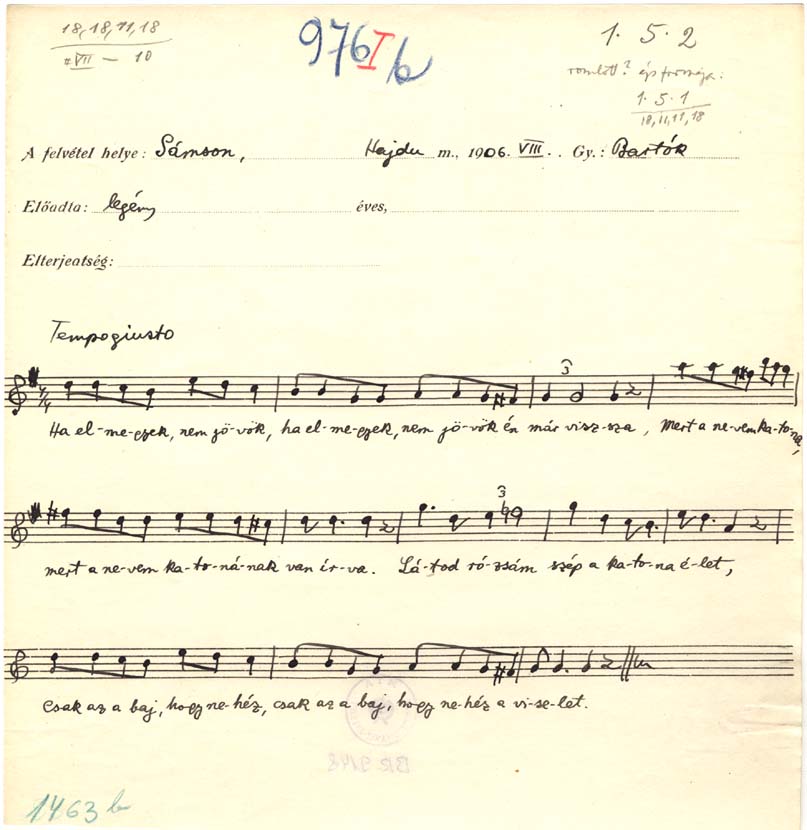 18,18,11,18
VII — 10
976 I b
1 · 5 · 2
romlott? ép formája:
1 · 5 · 1
18,11,11,18
A felvétel helye: Sámson, Hajdu m., 1906. VIII. . Gy.: Bartók
Előadta: legény éves,
Elterjedtség:
Tempo giusto
3
Ha el-me-gyek, nem jö-vök, ha el-me-gyek, nem jö-vök én már visz-sza, Mert a ne-vem ka-to-na,
3
mert a ne-vem ka-to-ná-nak van ír-va. Lá-tod ró-zsám szép a ka-to-na é-let,
Csak az a baj, hogy ne-héz, csak az a baj, hogy ne-héz a vi-se-let.
BR 9148
1463 b